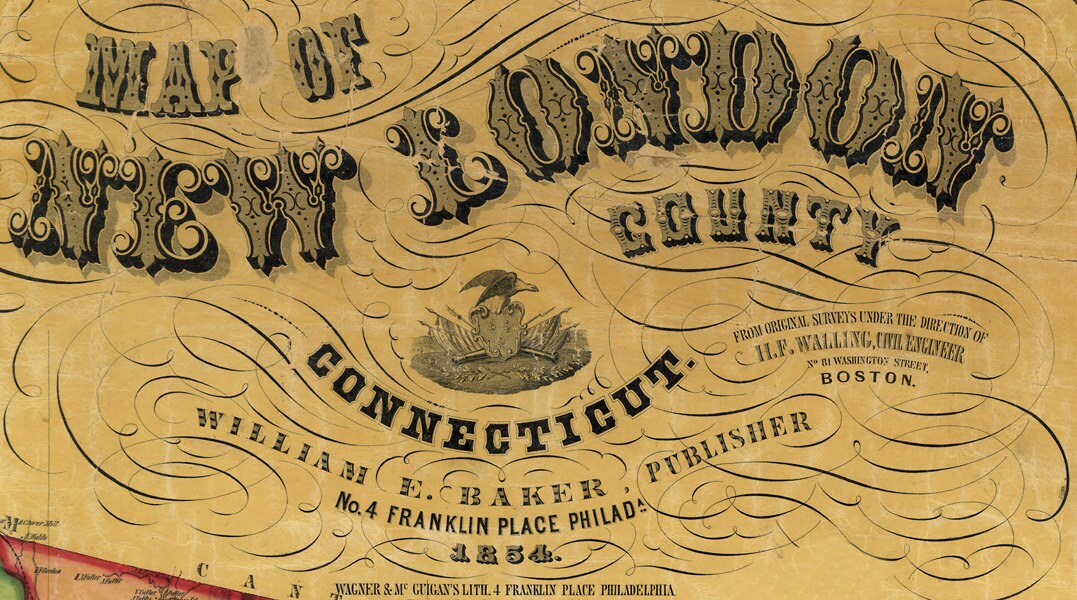 MAP OF
NEW LONDON,
COUNTY
CONNECTICUT.
FROM ORIGINAL SURVEYS UNDER THE DIRECTION OF
H.F. WALLING, CIVIL ENGINEER
No 81 WASHINGTON STREET,
BOSTON.
WILLIAM E. BAKER, PUBLISHER
No. 4 FRANKLIN PLACE PHILADA
1854.
WAGNER & Mc GUIGAN'S LITH. 4 FRANKLIN PLACE PHILADELPHIA
C A N T